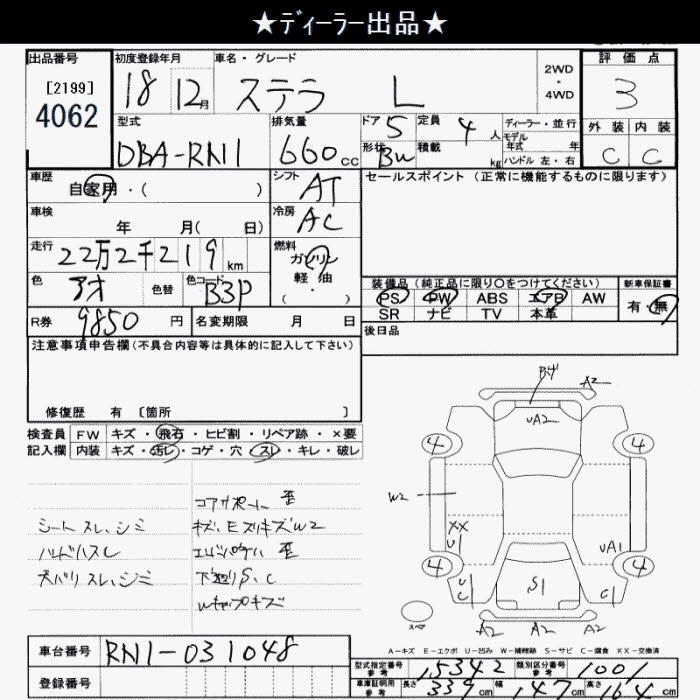 ★ディーラー出品★
出品番号 初度登録年月 車名・グレード 2WD ・ 4WD 評価点
[2199] 18 12月 ステラ L 3
4062
型式 排気量 ドア 5 定員 4人 ディーラー・並行 外装 内装
DBA-RN1 660cc 形状 BW 積載 kg モデル年式 年 ハンドル 左・右 C C
車歴 自家用・( ) シフト AT セールスポイント(正常に機能するものに限ります)
車検 年 月( 日) 冷房 AC
走行 22万2千219km 燃料 ガソリン
色 アオ 色替 色コード B3P 軽油
( ・ )
装備品(純正品に限り○をつけてください) 新車保証書
PS PW ABS エアB AW 有・無
SR ナビ TV 本革
R券 9850円 名変期限 月 日 後日品
注意事項申告欄(不具合内容等は具体的に記入して下さい)
修復歴 有 [箇所 ]
検査員 FW キズ・飛石・ヒビ割・リペア跡・×要
記入欄 内装 キズ・汚レ・コゲ・穴・スレ・キレ・破レ
コアサポート 歪
シートスレ、シミ
ハンドルスレ
天バリスレ、シミ
エンドパネル 歪
下廻りS、C
Wキャップキズ
A2
UA2
4 4
W2
XX
U
UA1
4 4
U
C
S1
C1
スペア
A2 A2 A2
A-キズ E-エクボ U-凹み W-補修跡 S-サビ C-腐食 XX-交換済
車台番号 RN1-031048
登録番号
型式指定番号 参考 15342 類別区分番号 参考 1001
車庫証明用 参考 長さ 339cm 幅 147cm 高さ 164cm